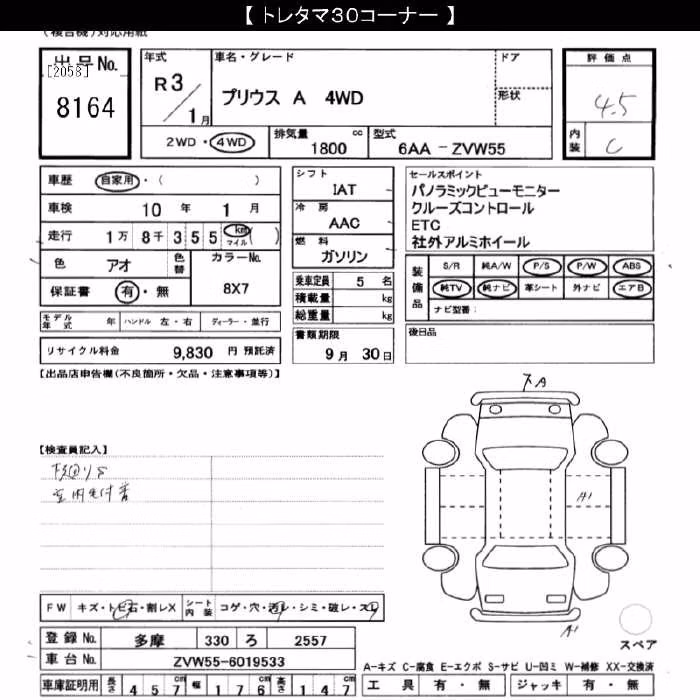 【 トレタマ30コーナー 】
(複合機)対応用紙
出品No.
[2058]
8164
年式
R3/1月
車名・グレード
プリウス A 4WD
ドア
形状
2WD・4WD
排気量 1800 cc
型式 6AA-ZVW55
評価点
4.5
内装 C
車歴 自家用・( )
車検 10年 1月
走行 1万 8千 3 5 5 km マイル( )
色 アオ 色替
カラーNo. 8X7
保証書 有・無
モデル年式 年 ハンドル 左・右 ディーラー・並行
リサイクル料金 9,830 円 預託済
シフト IAT
冷房 AAC
燃料 ガソリン
乗車定員 5 名
積載量 kg
総重量 kg
書類期限
9月 30日
セールスポイント
パノラミックビューモニター
クルーズコントロール
ETC
社外アルミホイール
装備品
S/R 純A/W P/S P/W ABS
純TV 純ナビ 革シート 外ナビ エアB
ナビ型番:
後日品
【出品店申告欄(不良箇所・欠品・注意事項等)】
【検査員記入】
A1
A1
FW キズ・トビ石・割レX シート内装 コゲ・穴・汚レ・シミ・破レ・スレ
登録No. 多摩 330 ろ 2557
車台No. ZVW55-6019533
車庫証明用 長さ 4 5 7cm 幅 1 7 6cm 高さ 1 4 7cm
スペア
A-キズ C-腐食 E-エクボ S-サビ U-凹ミ W-補修 XX-交換済
工具 有・無 ジャッキ 有・無